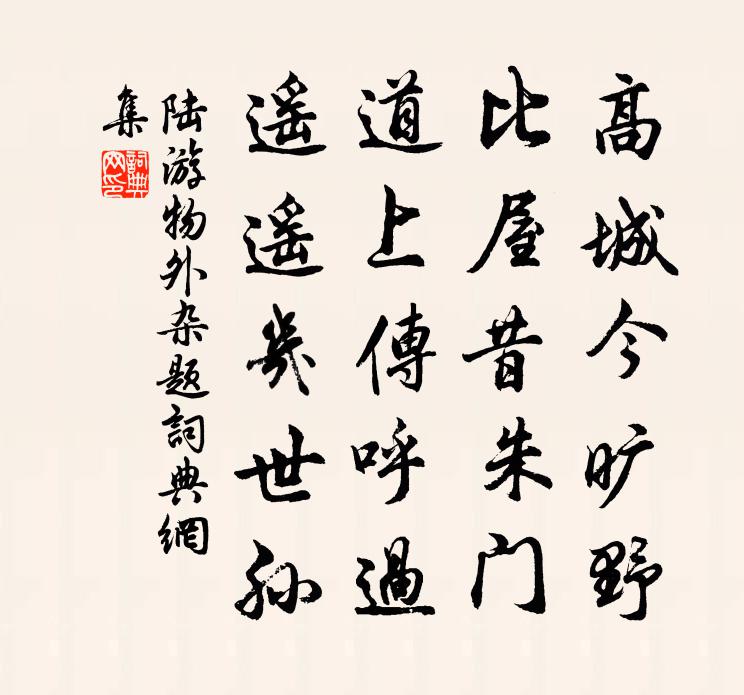 高城今旷野
比屋昔朱门
道上傳呼過
遥遥幾世孙
陆游物外杂题詞典網
集
詞典网印